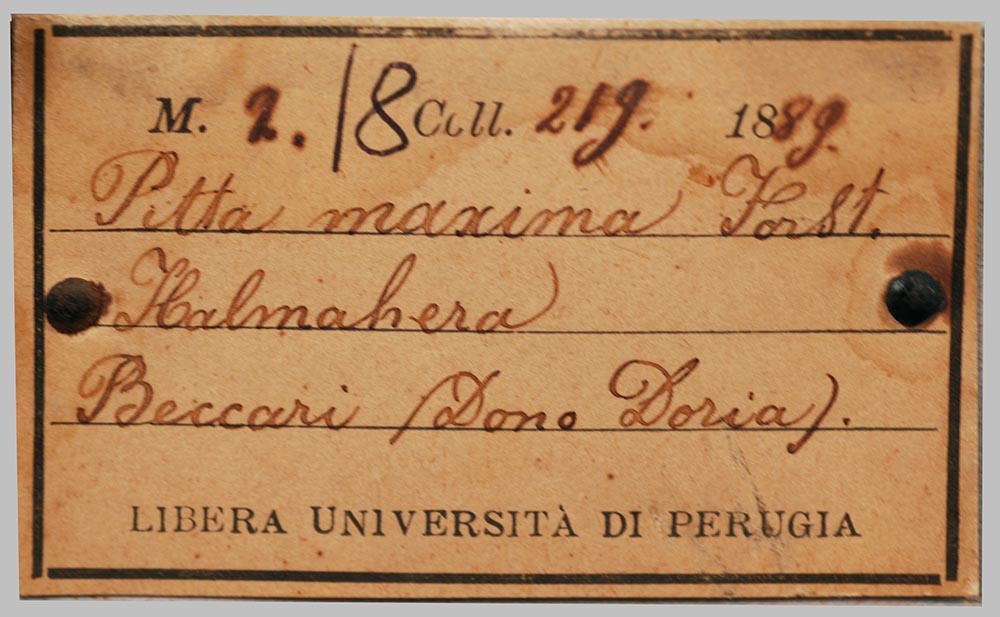 M. 2. /8 Coll. 219. 1889.
Pitta maxima Forst.
Halmahera
Beccari (Dono Doria).
LIBERA UNIVERSITÀ DI PERUGIA